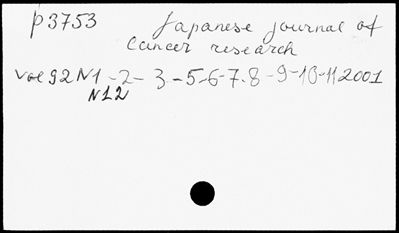 p3753 Japanese journal of
cancer research
Vol 92 N1-2-3-5-6-7-8-9-10-11 2001
N12